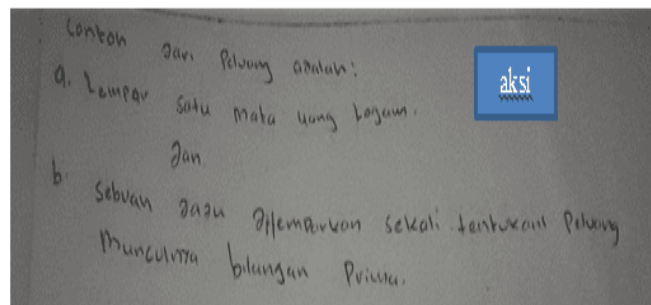 Contoh dari Peluang adalah:
a. Lempar satu mata uang logam.
aksi
dan
b. Sebuah dadu dilemparkan sekali tentukan Peluang
Munculnya bilangan Prima.